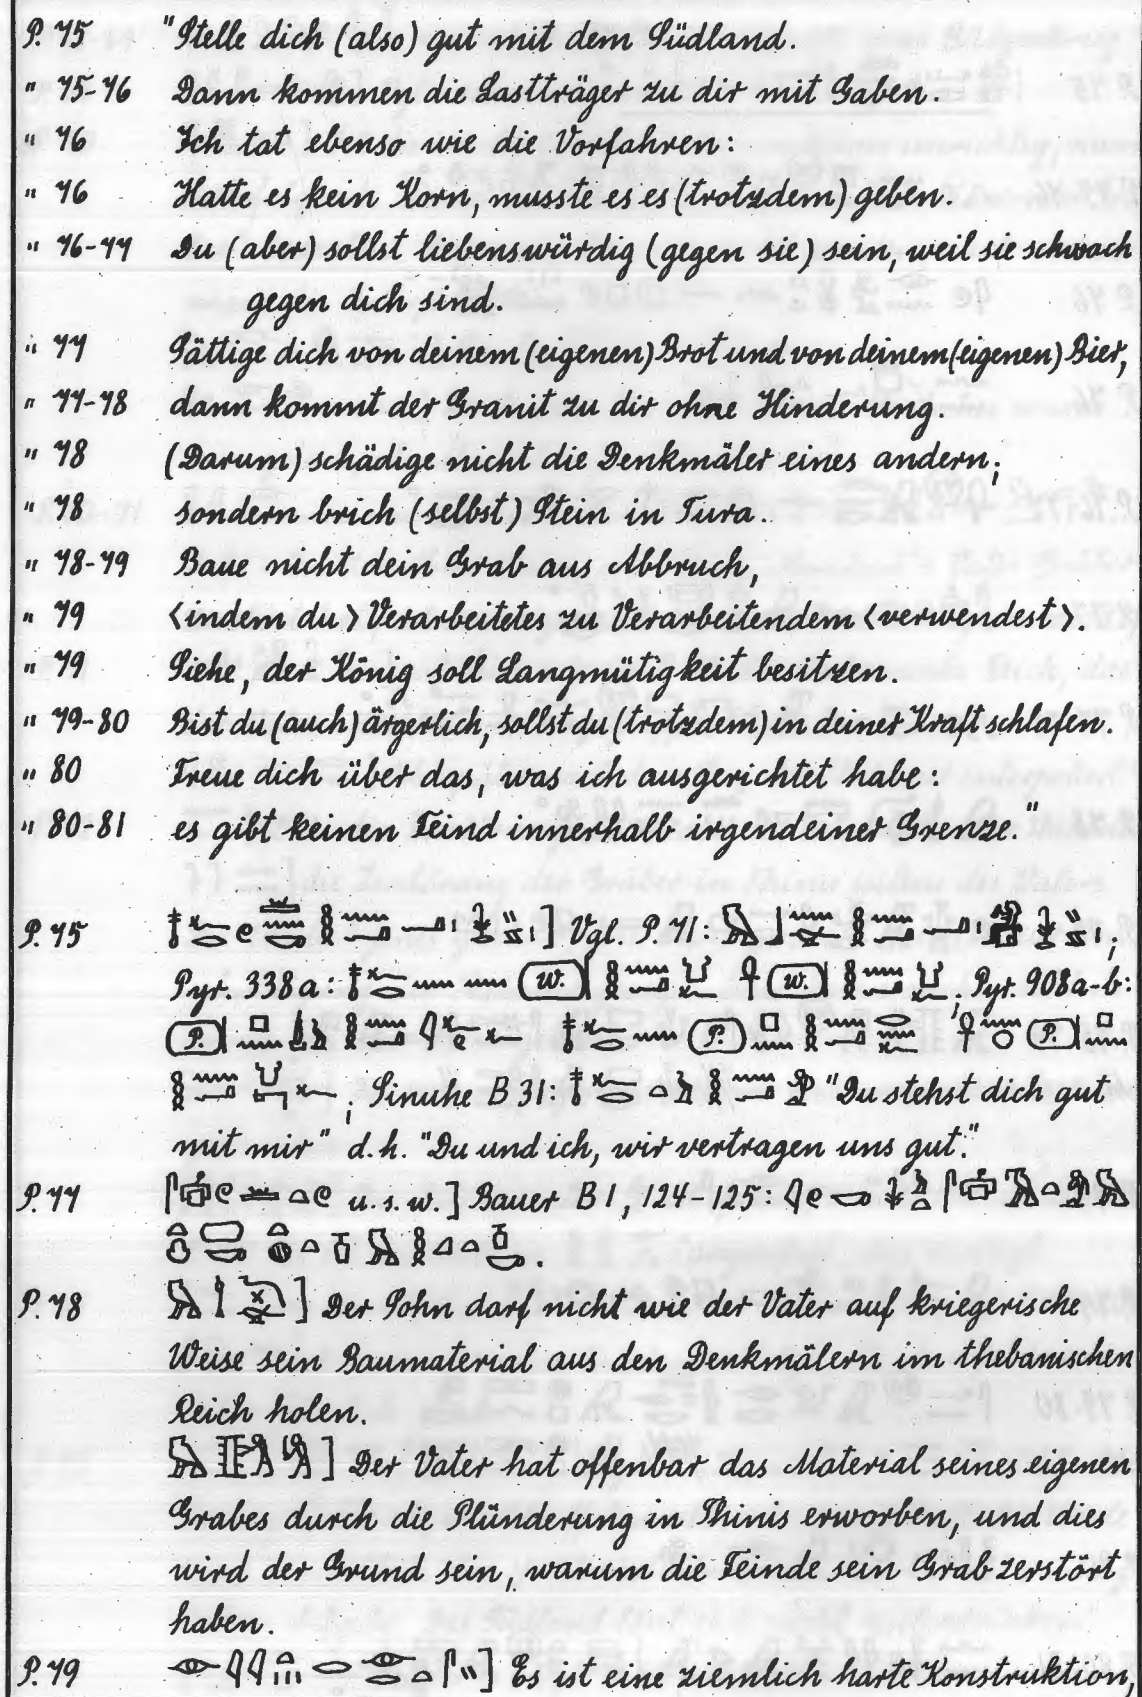 P. 75 "Stelle dich (also) gut mit dem Südland.
" 75-76 Dann kommen die Lastträger zu dir mit Gaben.
" 76 Ich tat ebenso wie die Vorfahren:
" 76 Hatte es kein Korn, musste es es (trotzdem) geben.
" 76-77 Du (aber) sollst liebenswürdig (gegen sie) sein, weil sie schwach
gegen dich sind.
" 77 Sättige dich von deinem (eigenen) Brot und von deinem (eigenen) Bier,
" 77-78 dann kommt der Granit zu dir ohne Hinderung.
" 78 (Darum) schädige nicht die Denkmäler eines andern;
" 78 sondern brich (selbst) Stein in Tura.
" 78-79 Baue nicht dein Grab aus Abbruch,
" 79 <indem du> Verarbeitetes zu Verarbeitendem <verwendest>.
" 79 Siehe, der König soll Langmütigkeit besitzen.
" 79-80 Bist du (auch) ärgerlich, sollst du (trotzdem) in deiner Kraft schlafen.
" 80 Freue dich über das, was ich ausgerichtet habe:
" 80-81 es gibt keinen Feind innerhalb irgendeiner Grenze."
P. 75 ] Vgl. P. 71: ;
Pyr. 338a: (W.) (W.) ; Pyr. 908a-b:
(P.) (P.) (P.)
; Sinuhe B 31: "Du stehst dich gut
mit mir" d.h. "Du und ich, wir vertragen uns gut."
P. 77 u.s.w.] Bauer B 1, 124-125:
.
P. 78 ] Der Sohn darf nicht wie der Vater auf kriegerische
Weise sein Baumaterial aus den Denkmälern im thebanischen
Reich holen.
] Der Vater hat offenbar das Material seines eigenen
Grabes durch die Plünderung in Thinis erworben, und dies
wird der Grund sein, warum die Feinde sein Grab zerstört
haben.
P. 79 ] Es ist eine ziemlich harte Konstruktion,